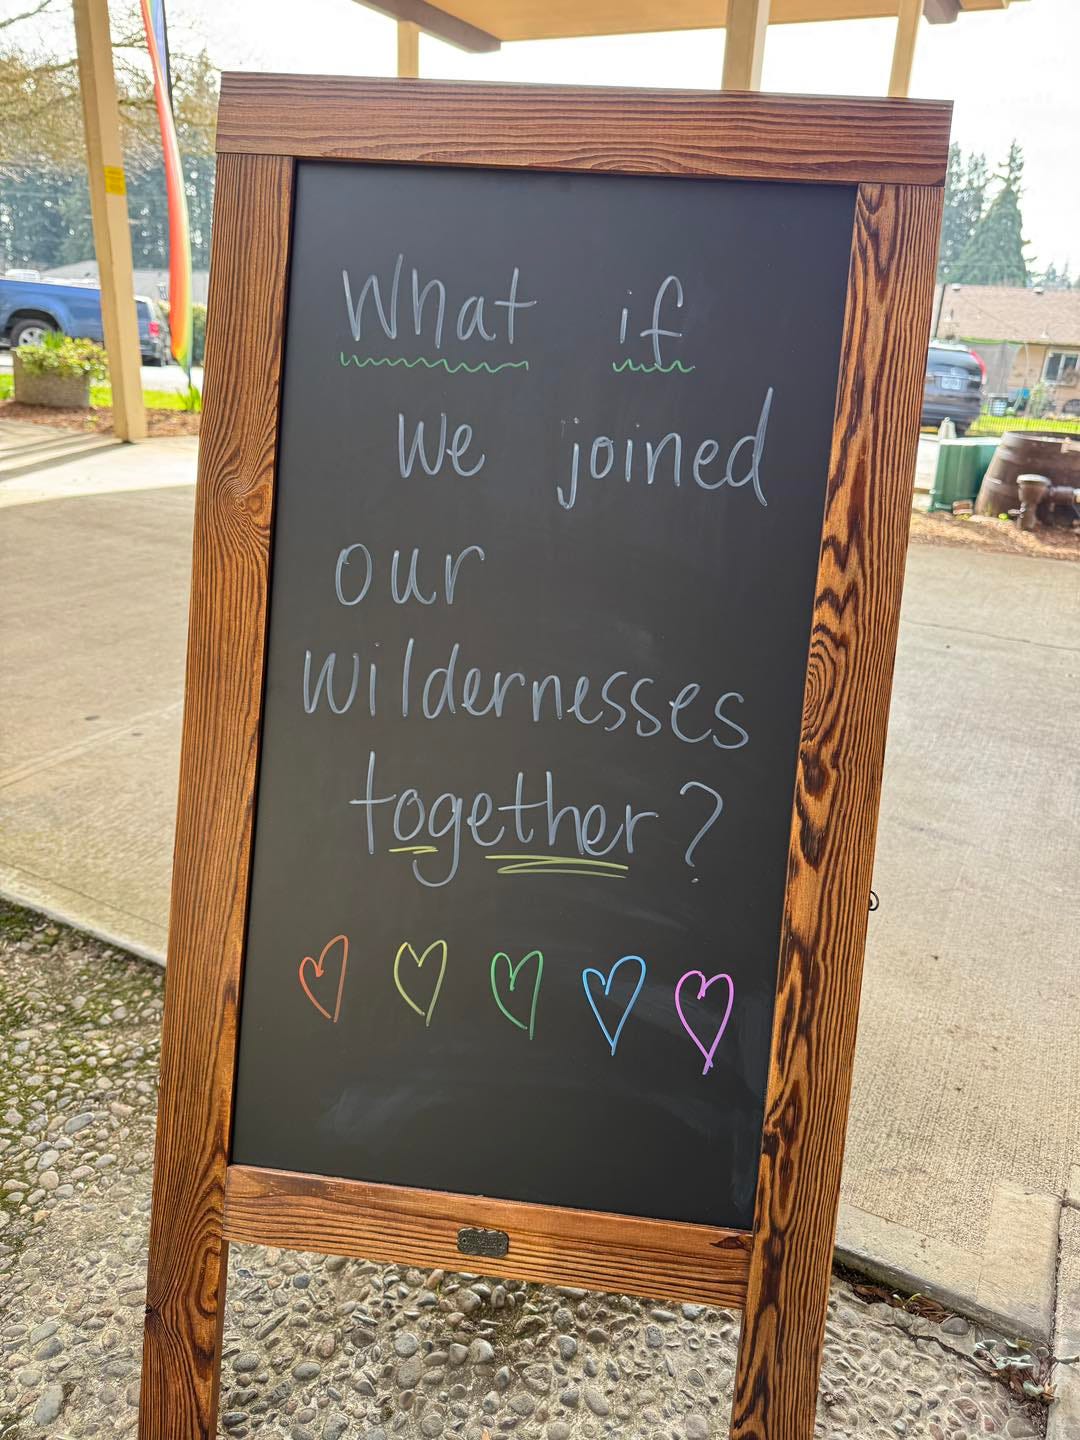 What if
we joined
our
wildernesses
together?